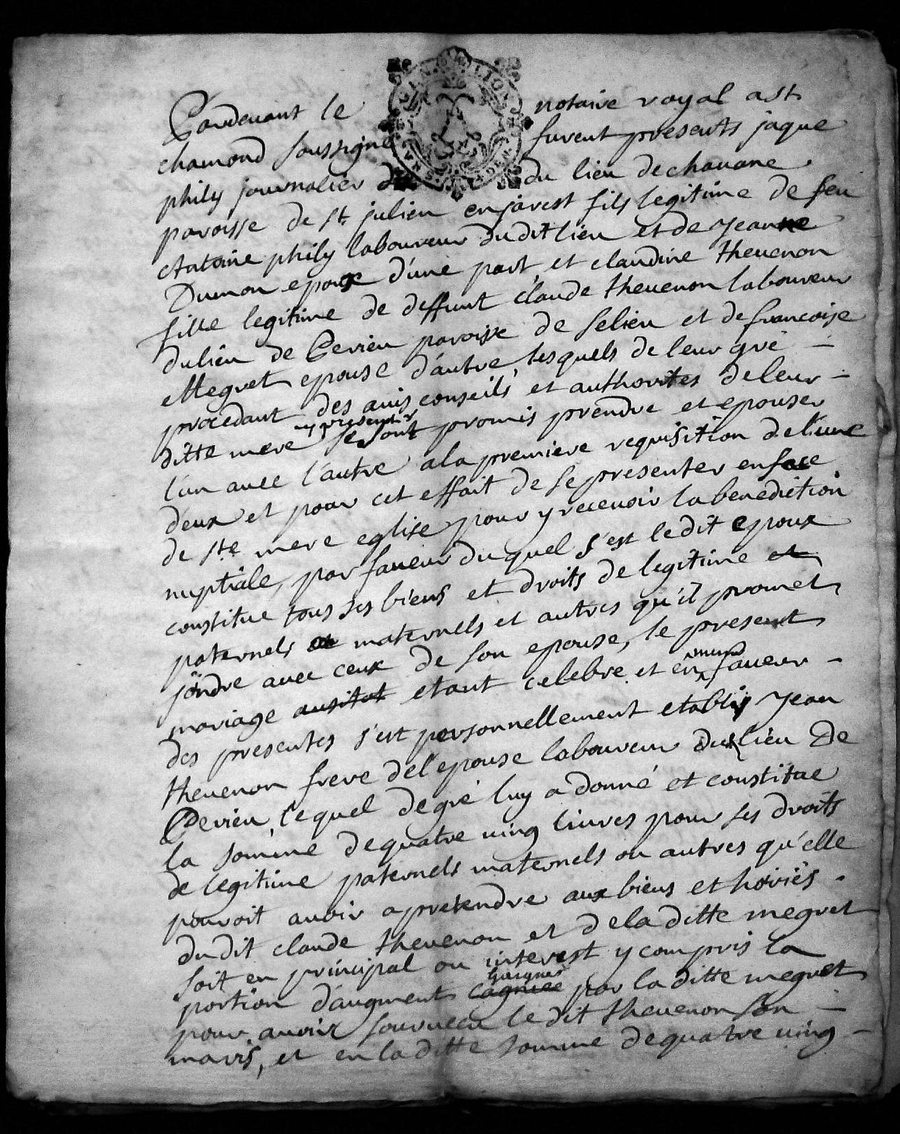 Pardevant le notaire royal a st
chamond soussigné furent presents jaque
phily journalier du lieu de chavane
paroisse de st julien en jarest fils legitime de feu
Antoine phily laboureur dudit lieu et de jeanne
Dumon epoux d'une part, et claudine thevenon
fille legitime de deffunt claude thevenon laboureur
du lieu de Cevieu paroisse de selieu et de francoise
Megret epouse d'autre, lesquels de leur gré
procedant des avis conseils, et authorités de leur
ditte mere icy presentes se sont promis prendre et epouser
l'un avec l'autre a la premiere requisition de l'un
d'eux et pour cet effait de se presenter en face
de ste mere eglise pour y recevoir la benediction
nuptiale, par faveur du quel s'est le dit epoux
constitue tous ses biens et droits de legitime
paternels et maternels et autres qu'il promet
joindre avec ceux de son epouse, le present
mariage ausitot etant celebre, et en faveur
des presentes s'est personnellement etably jean
thevenon frere de l'epouse laboureur du lieu de
Cevieu, lequel de gré luy a donné et constitue
la somme de quatre ving livres pour ses droits
de legitime paternels maternels ou autres qu'elle
pouvoit avoir a pretendre aux biens et hoiriés
dudit claude thevenon et de la ditte megret
soit en principal ou interest y compris la
portion d'augment gaigneé par la ditte megret
pour avoir survecu le dit thevenon son
maris, et en la ditte somme de quatre ving